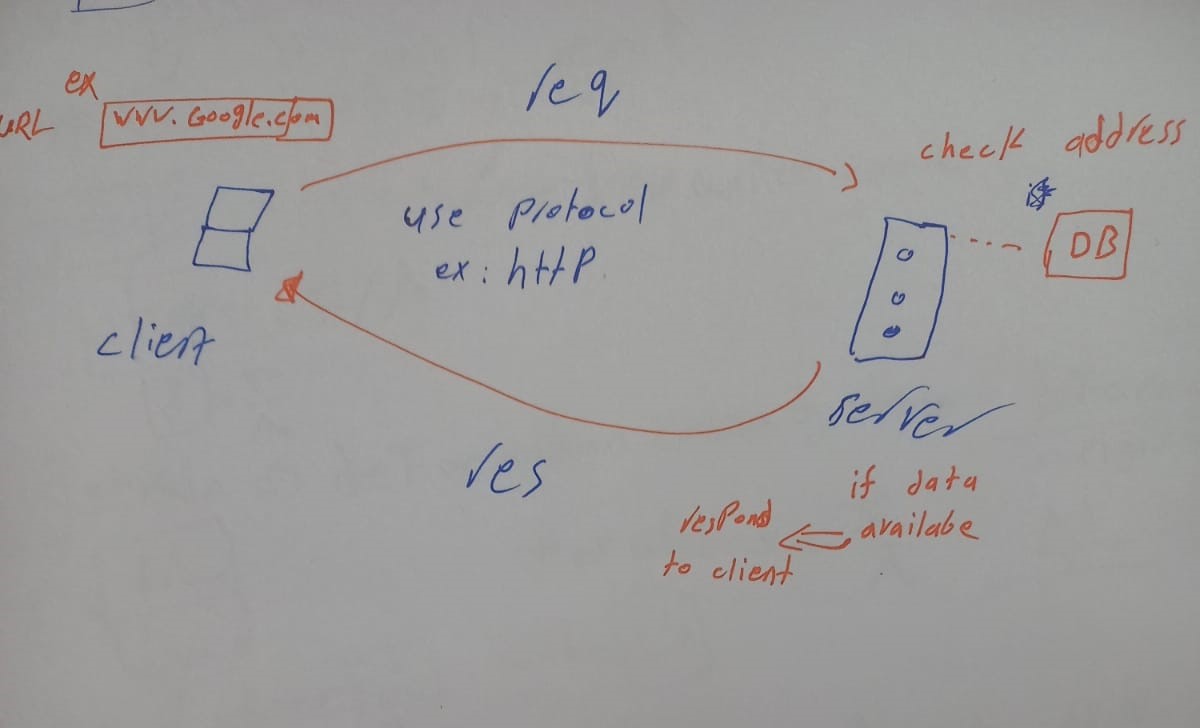 ex
URL
www.Google.com
req
check address
use protocol
ex: http
DB
client
server
res
if data
availabe
respond
to client